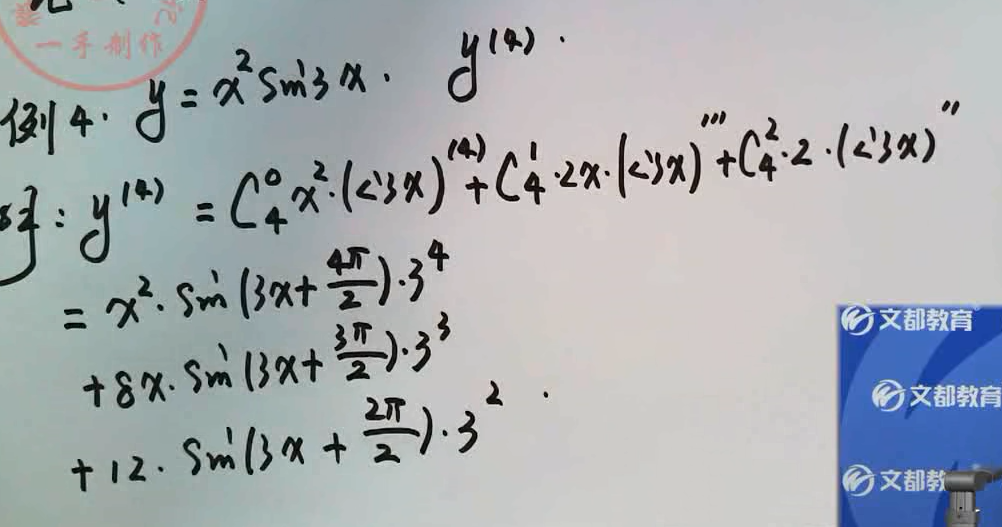 一手制作
例4. y = x² sin3x. y⁽⁴⁾.
解: y⁽⁴⁾ = C₄⁰ x²·(s'3x)⁽⁴⁾ + C₄¹·2x·(s'3x)''' + C₄²·2·(s'3x)''
= x²·sin(3x+4π/2)·3⁴
+8x·sin(3x+3π/2)·3³
+12·sin(3x+2π/2)·3².
文都教育
文都教育
文都教